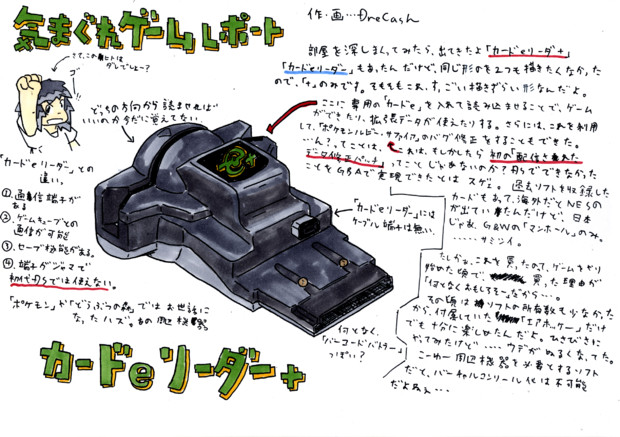 気まぐれゲームレポート
作・画…OneCash
さて、この構ヒトは
ダレでしょー?
ゴ!
どっちの方向から読ませれば
いいのか今だに覚えてない
部屋を探しまくってみたら、出てきたよ「カードeリーダー+」
「カードeリーダー」もあったんだけど、同じ形のを2つも描きたくなかった
ので、「+」のみです。そもそもこれ、すごい描きずらい形なんだよ。
ここに専用の「カードe」を入れて読み込ませることで、ゲーム
ができたり、拡張データが使えたりする。さらには、これを利用
して、「ポケモンルビー・サファイア」のバグ修正をすることもできた。
…ん?、ってことは、これは、もしかしたら初の「配信された
データ修正パッチ」ってことじゃないのか?今でしてできなかった
ことをGBAで実現できたことはスゲェ。過去ソフトを収録した
カードもあって、海外だとNESの
が出ていたんだけど、日本
じゃあ、G&Wの「マンホール」のみ。
……サミシイ。
「カードeリーダー」との
違い。
①通信端子が
ある
②ゲームキューブとの
通信が可能
③セーブ機能がある。
④端子がジャマで
初代DSでは使えない。
「ポケモン」や「どうぶつの森」ではお世話に
なったハズ。あの周辺機器
「カードeリーダー」には
ケーブル端子は無い。
何となく、
「バーコードバトラー」
っぽい?
たしか、これを買ったのって、ゲームをやり
始めた頃で、買った理由が
「何となくおもしろそーだから…。
その頃はソフトの所有数も少なかった
から、付属していた「エアホッケー」だけ
でも十分に楽しめたんだよ。ひさびさに
やってみたけど……ウデがぬるくなってた。
こーゆー周辺機器を必要とするソフト
だと、バーチャルコンソール化は不可能
だよねぇ…
カードeリーダー+